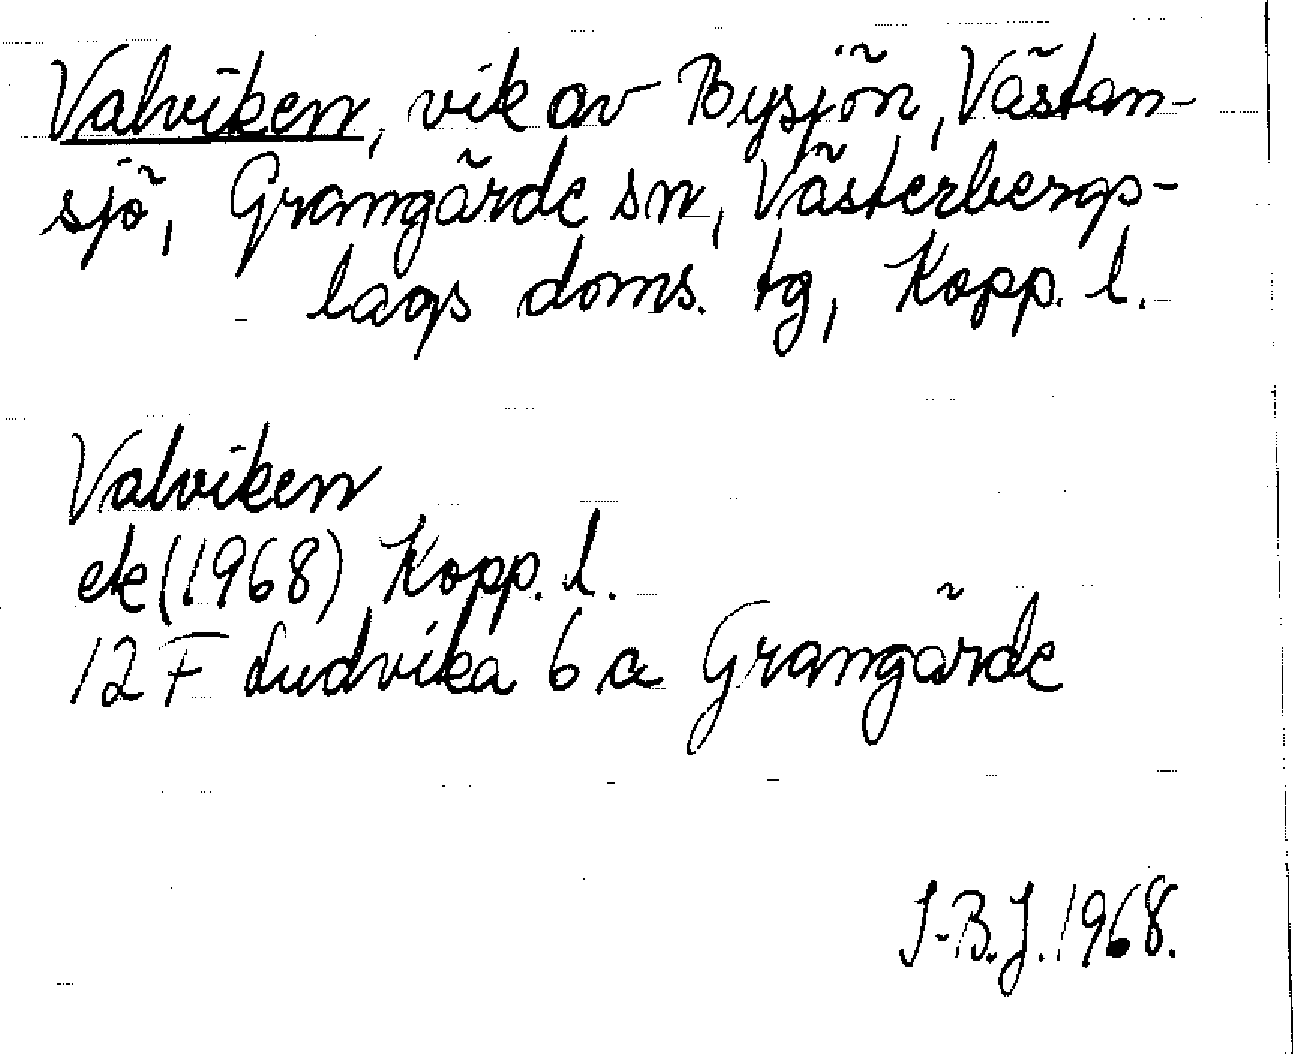 Valviken, vik av Bysjön, Västan-
sjö, Grangärde sn, Västerbergs-
lags doms. tg, Kopp. l.
Valviken
ek (1968) Kopp. l.
12 F Ludvika 6 a Grangärde
I-B.J. 1968.